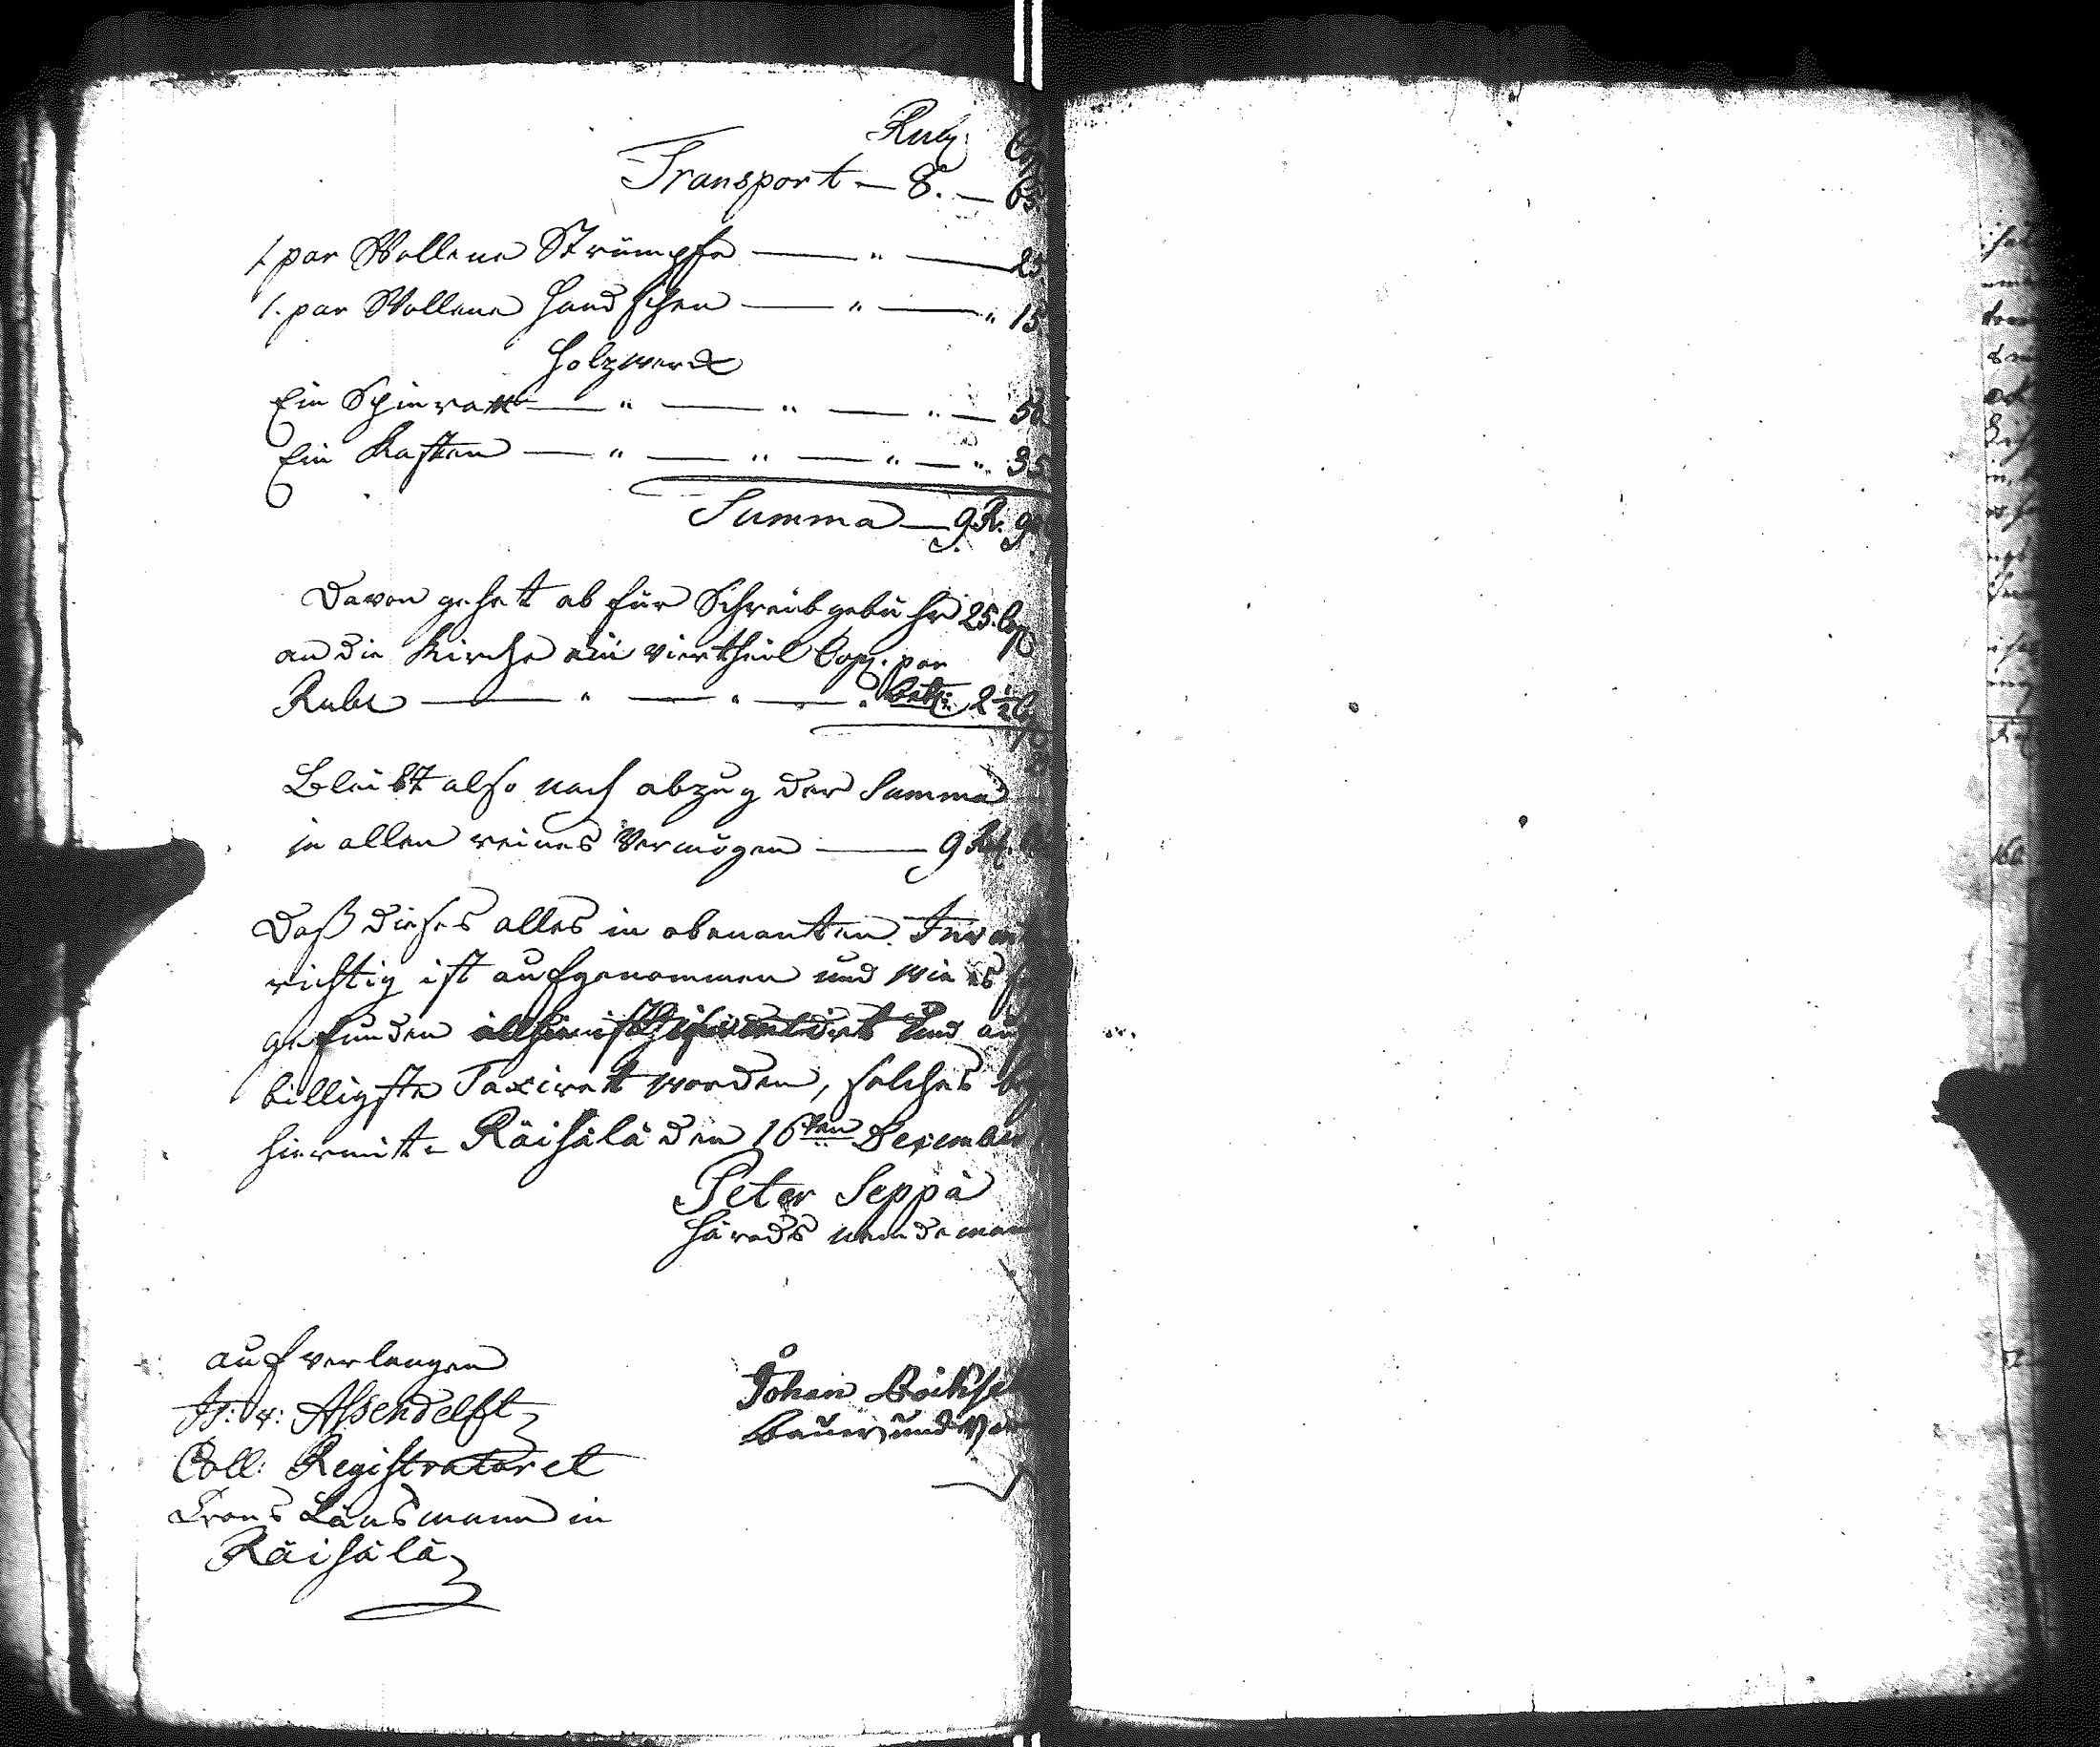 Rub. Cop
Transport — 8. — 65
1. par Wollene Strümpfe — " — 25
1. par Wollene Handschen — " — " 15
Holzwerck
Ein Spinratt — " — " — " — 50
Ein Kasten — " — " — " — " 35
Summa — 9 R. 90
Davon gehet ab für Schreibgebühr 25. Cop
an die Kirche ein viertheil Cop. par
Rubl — " — " — " 2 1/2 C
Bleibt also nach abzug der Summa
in allen reines Vermögen — 9 R.
Daß dieses alles in obenanten
richtig ist aufgenommen und wie es
gefunden und auf
billigste Taxiret worden, solches
hiermit. Räisälä den 16ten December
Peter Seppä
Härads nemdeman
auf verlangen
Js: v: Assendelft
Coll: Registrator et
Crons Länsmann in
Räisälä
Johan
Bauer und